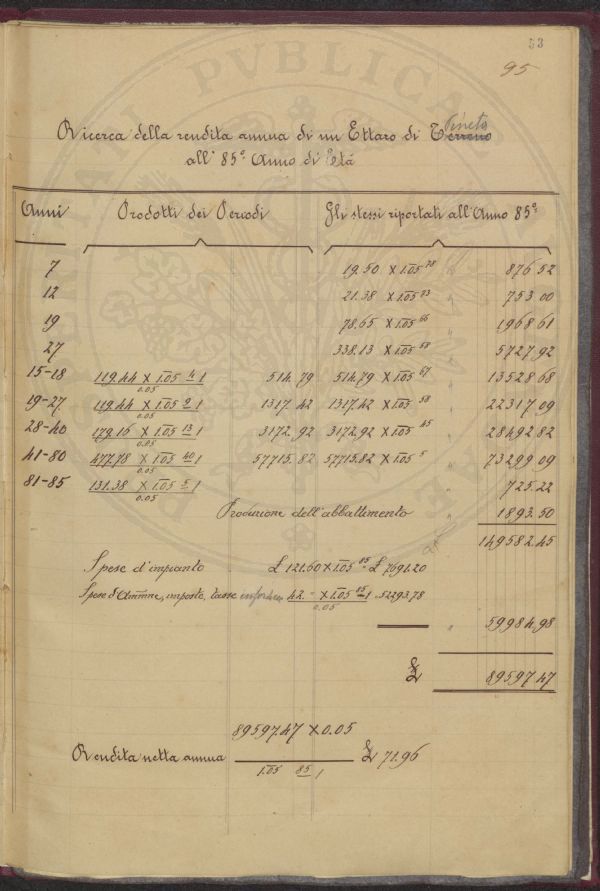 53
95
Ricerca della rendita annua di un Ettaro di Terreno Pineta
all' 85° Anno di Età
Anni Prodotti dei Periodi Gli stessi riportati all'Anno 85°
7 19.50 X 1.05 78 " 876 52
12 21.38 X 1.05 73 " 753 00
19 78.65 X 1.05 66 " 1968 61
27 338.13 X 1.05 58 " 5727.92
15-18 119.44 X 1.05 4-1 514.79 514.79 X 1.05 67 " 13528 68
0.05
19-27 119.44 X 1.05 9-1 1317.42 1317.42 X 1.05 58 " 22317 09
0.05
28-40 179.16 X 1.05 13-1 3172.92 3172.92 X 1.05 45 " 28492 82
0.05
41-80 477.78 X 1.05 40-1 57715.82 57715.82 X 1.05 5 " 73299 09
0.05
81-85 131.38 X 1.05 5-1 " 725.22
0.05
Produzione dell'abbattimento " 1893.50
149582.45
Spese d'impianto £ 121.60 X 1.05 85 = £ 7691.20
Spese d'Ammne, imposte, tasse 42. = X 1.05 85-1 52293.78
0.05
" 59984.98
£ 89597.47
89597.47 X 0.05
Rendita netta annua £ 71.96
1.05 85-1
PVBLICA